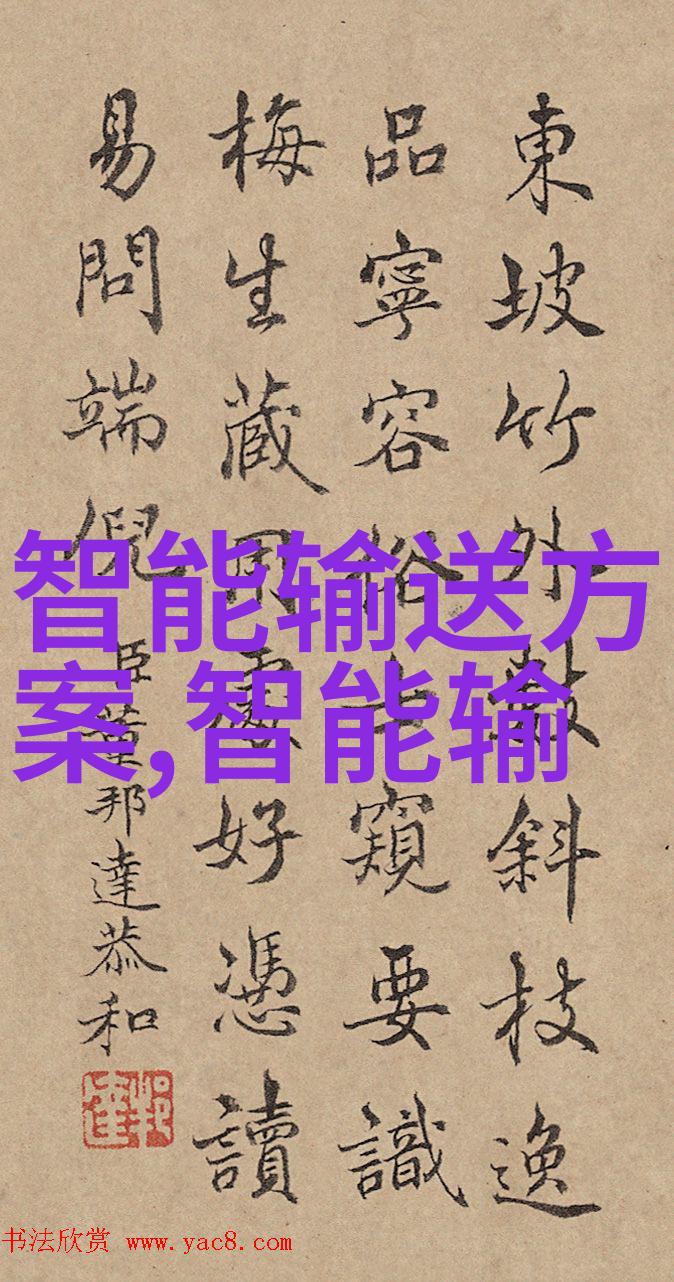 東坡竹外數斜枝逸
品寧容俗窺要識
梅生藏用處好憑讀
易問端倪
臣董邦達恭和
智能输送方
案,智能输
书法欣赏 www.yac8.com